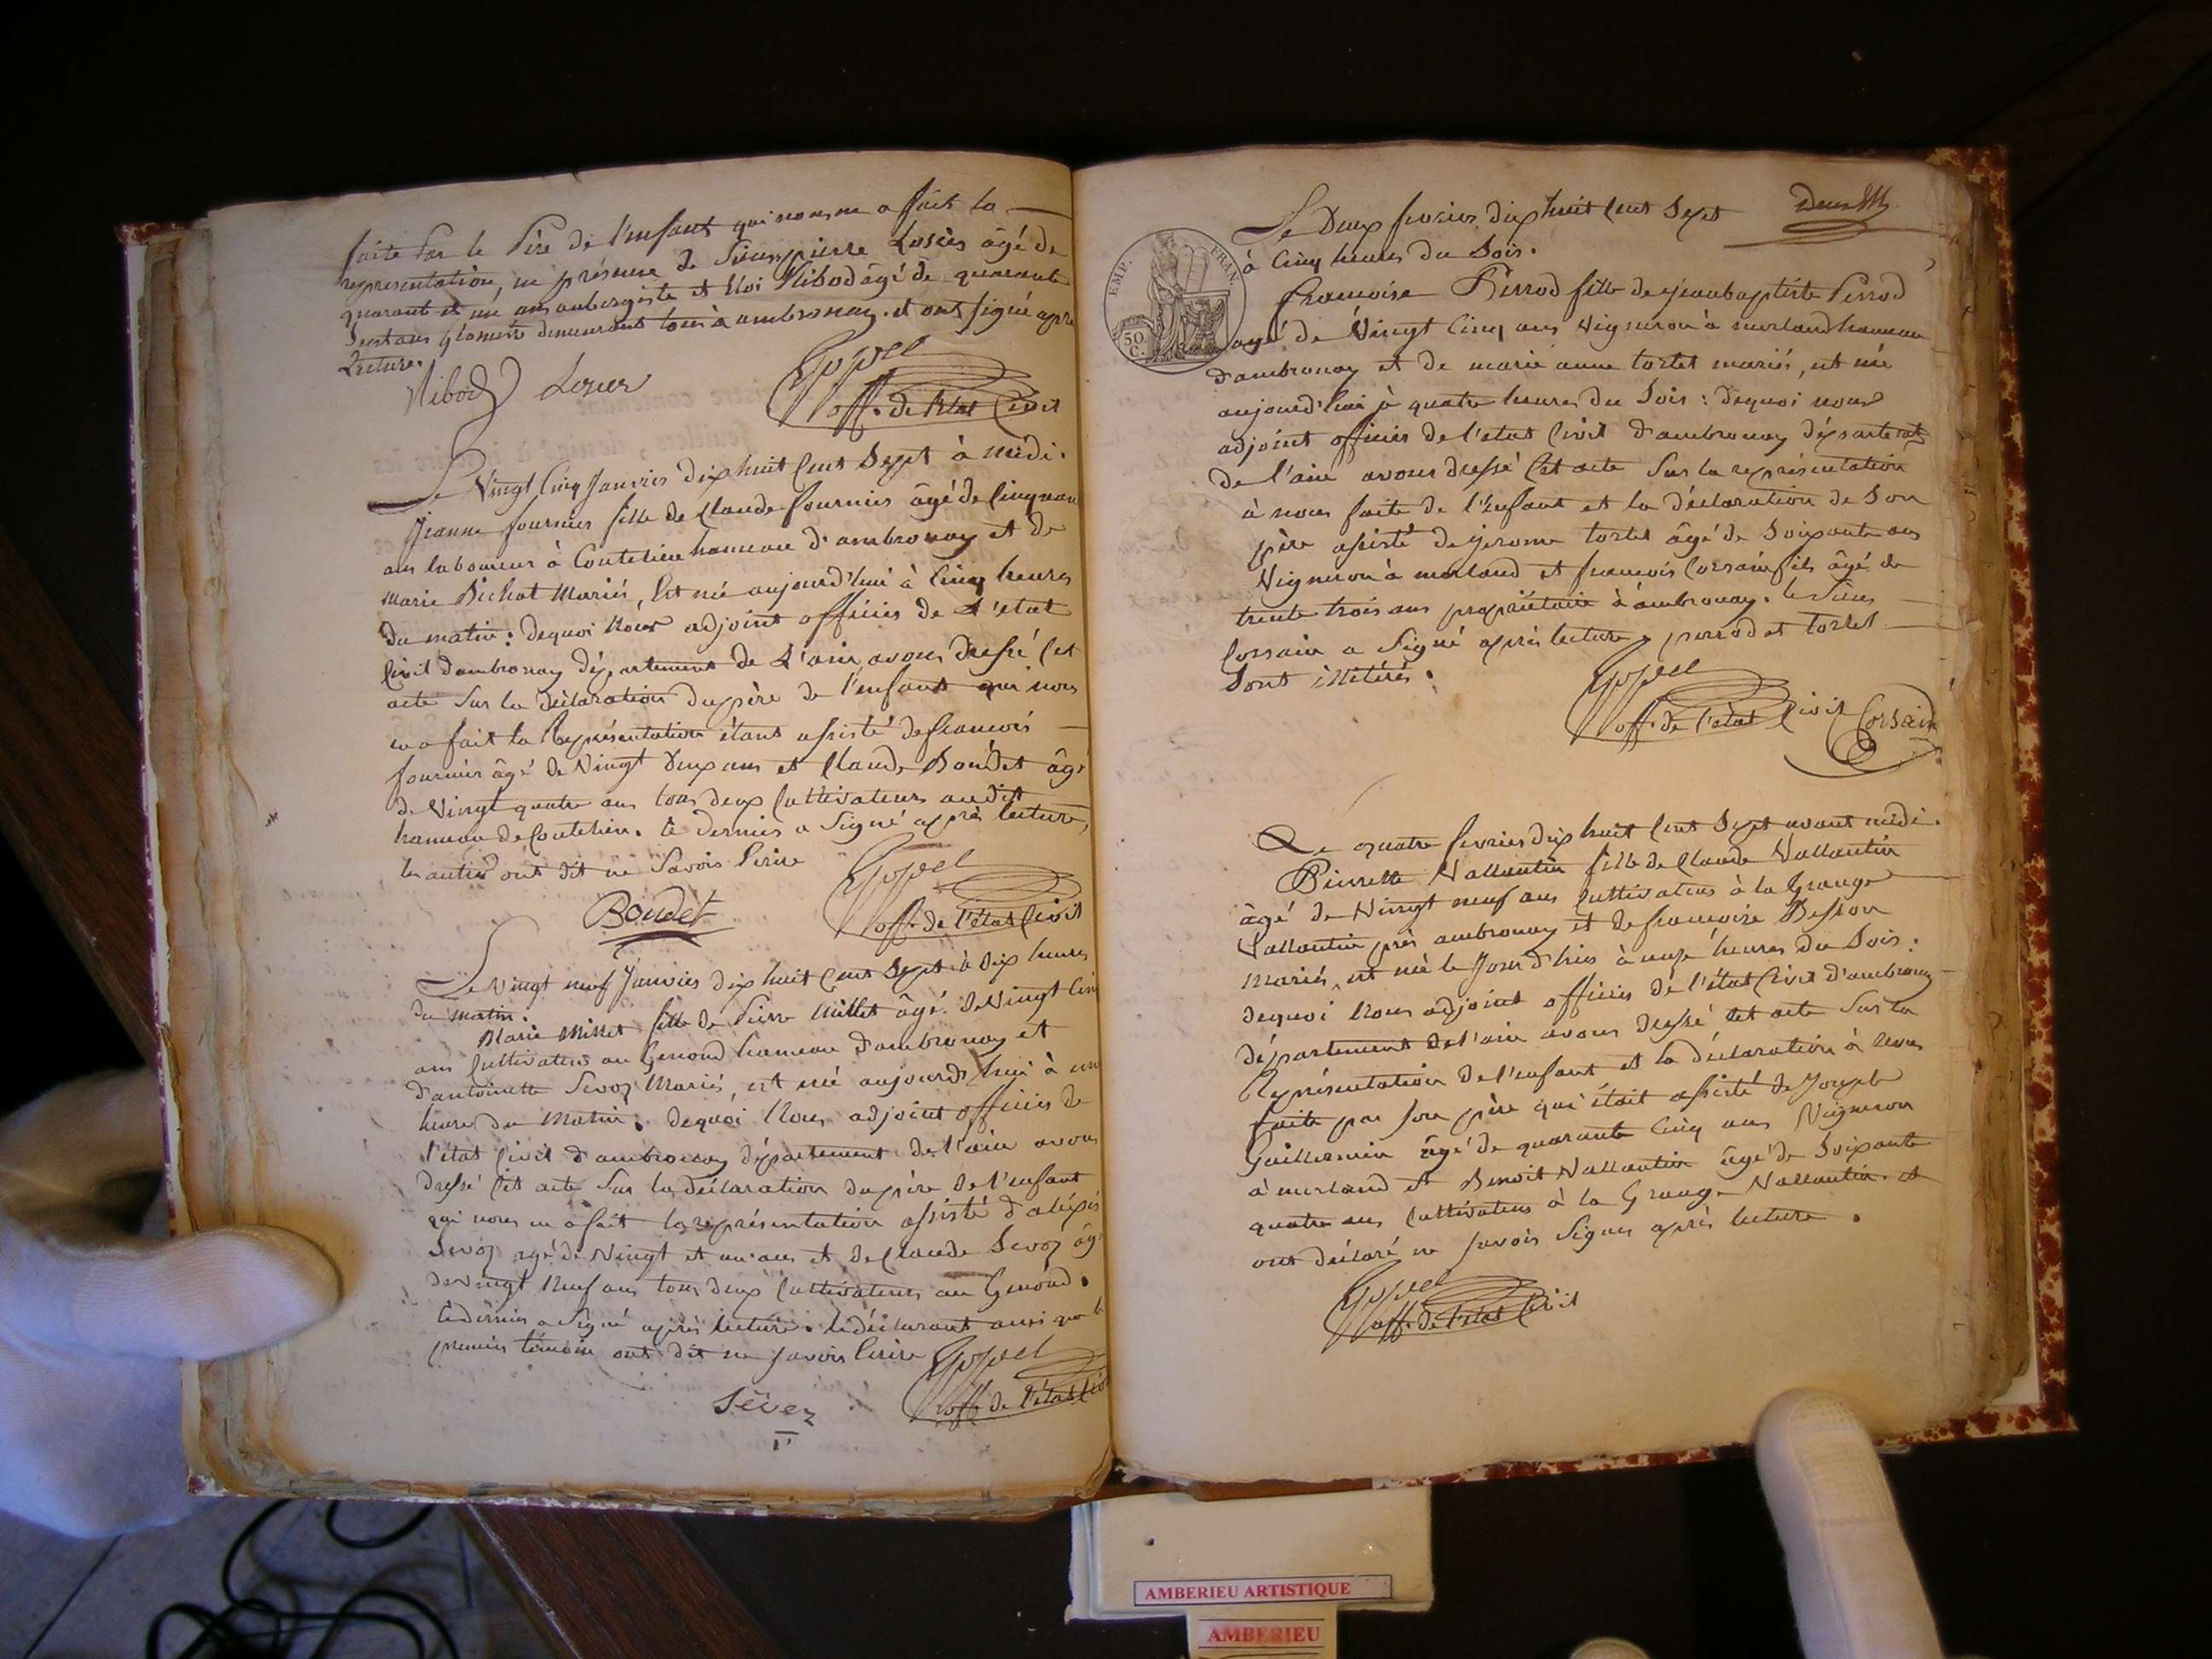 faite par le Père de l'enfant qui nous en a fait la
représentation, en présence de Sieurs pierre Losier âgé de
quarant et un ans aubergiste et Eloi Nibod âgé de quarante
Sept ans demeurant tous à ambronay. et ont signé après
Lecture.
Nibod Losier
off. de l'état Civil
Le Vingt Cinq Janvier dix huit Cent Sept à midi.
Jeanne fournier fille de Claude fournier âgé de Cinquante
ans laboureur à Coutelieu hameau d'ambronay et de
marie Bichat Mariés, Est née aujourd'hui à Cinq heures
du matin : dequoi Nous adjoint officier de L'état
Civil d'ambronay département de L'ain avons dressé Cet
acte Sur la déclaration du père de l'enfant qui nous
en a fait la Représentation étant assisté de francois
fournier âgé de Vingt deux ans et Claude Boudet âgé
de Vingt quatre ans tous deux Cultivateurs audit
hameau de Coutelieu. le dernier a Signé après lecture,
les autres ont dit ne Savoir Ecrire
Boudet
off. de l'état Civil
Le Vingt neuf Janvier dix huit Cent Sept à dix heures
du matin.
Marie Millet fille de Pierre Millet âgé de Vingt Cinq
ans Cultivateur au Genoud hameau d'ambronay et
d'antoinette Sevoz Mariés, est née aujourd'hui à une
heure du Matin. dequoi Nous adjoint officier de
l'état Civil d'ambronay département de l'ain avons
dressé Cet acte Sur la déclaration du père de l'enfant
qui nous en a fait la représentation assisté d'aléxis
Sevoz agé de Vingt et un ans et de Claude Sevoz âgé
de Vingt Neuf ans tous deux Cultivateurs au Genoud.
le dernier a Signé après lecture. le déclarant ainsi que le
premier témoin ont dit ne savoir Ecrire
off. de l'état Civil
Sévoz
Deux
Le Deux fevrier dix huit Cent Sept
à Cinq heures du Soir.
EMP. FRAN.
50 C.
francoise Perrod fille de jeanbaptiste Perrod
agé de Vingt Cinq ans Vigneron à merland hameau
d'ambronay et de marie anne tortel mariés, est née
aujourd'hui à quatre heures du Soir : dequoi nous
adjoint officier de l'etat Civil d'ambronay département
de l'ain avons dressé Cet acte Sur la représentation
à nous faite de l'Enfant et la déclaration de Son
père assisté de jerome tortel âgé de Soixante ans
Vigneron à merland et francois Corsain fils âgé de
trente trois ans propriétaire à ambronay. le Sieur
Corsain a Signé après lecture, perrod et tortel
Sont illitérés.
off. de l'état Civil
Corsain
Le quatre fevrier dix huit Cent Sept avant midi.
Pierrette Vallantin fille de Claude Vallantin
âgé de Vingt neuf ans Cultivateur à la Grange
Vallantin près ambronay et de francoise Besson
Mariés, est née le Jour d'hier à onze heures du Soir :
dequoi Nous adjoint officier de l'état Civil d'ambronay
département de l'ain avons dressé Cet acte Sur la
Représentation de l'enfant et la déclaration à Nous
faite par son père qui était assisté de Joseph
Guillermin âgé de quarante Cinq ans Vigneron
à merland et Benoit Vallantin âgé de Soixante
quatre ans Cultivateur à la Grange Vallantin. et
ont déclaré ne Savoir Signer après lecture.
off. de l'état Civil
AMBERIEU ARTISTIQUE
AMBERIEU